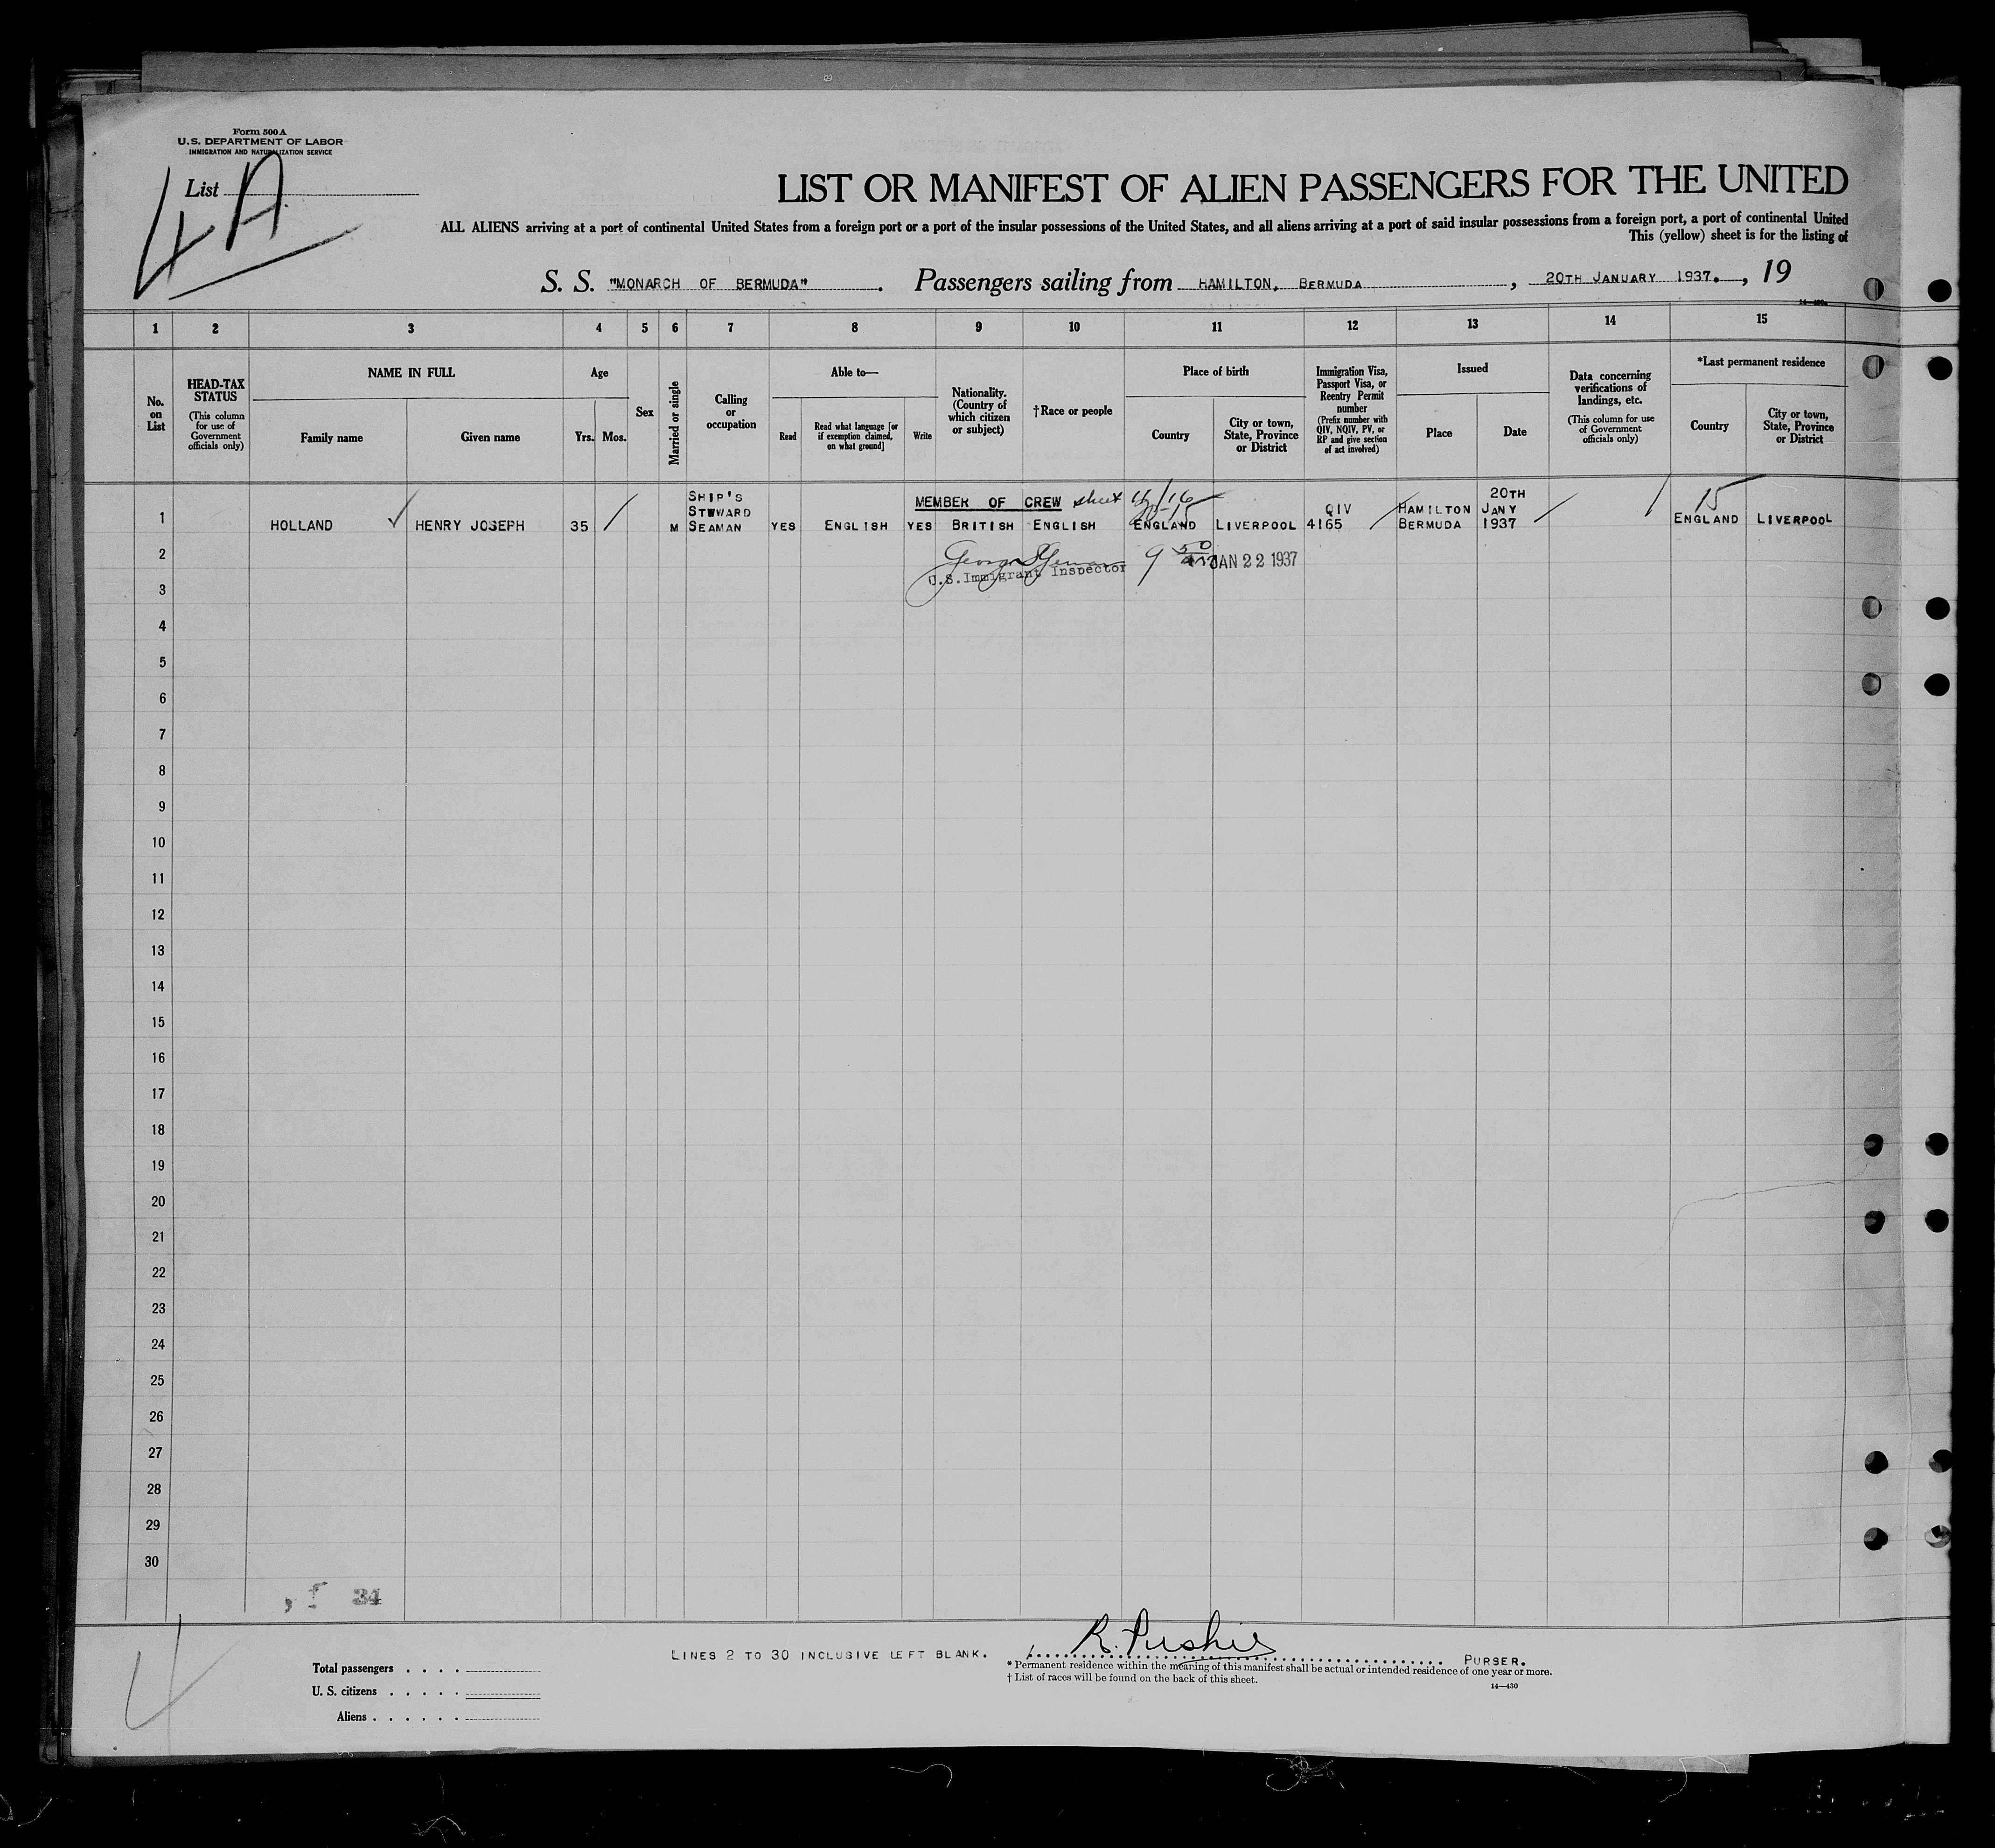 Form 500 A
U.S. DEPARTMENT OF LABOR
IMMIGRATION AND NATURALIZATION SERVICE
List 4A
LIST OR MANIFEST OF ALIEN PASSENGERS FOR THE UNITED
ALL ALIENS arriving at a port of continental United States from a foreign port or a port of the insular possessions of the United States, and all aliens arriving at a port of said insular possessions from a foreign port, a port of continental United
This (yellow) sheet is for the listing of
S. S. "MONARCH OF BERMUDA". Passengers sailing from HAMILTON, BERMUDA, 20TH JANUARY 1937., 19
1 2 3 4 5 6 7 8 9 10 11 12 13 14 15
No. on List
HEAD-TAX STATUS
(This column for use of Government officials only)
NAME IN FULL
Family name
Given name
Age
Yrs. Mos.
Sex
Married or single
Calling or occupation
Able to—
Read
Read what language [or if exemption claimed, on what ground]
Write
Nationality. (Country of which citizen or subject)
†Race or people
Place of birth
Country
City or town, State, Province or District
Immigration Visa, Passport Visa, or Reentry Permit number
(Prefix number with QIV, NQIV, PV, or RP and give section of act involved)
Issued
Place
Date
Data concerning verifications of landings, etc.
(This column for use of Government officials only)
*Last permanent residence
Country
City or town, State, Province or District
MEMBER OF CREW sheet
15
1 HOLLAND HENRY JOSEPH 35 M SHIP'S STEWARD SEAMAN YES ENGLISH YES BRITISH ENGLISH ENGLAND LIVERPOOL QIV 4165 HAMILTON BERMUDA 20TH JANY 1937 ENGLAND LIVERPOOL
2
U.S. Immigrant Inspector
9 50 AM JAN 22 1937
3
4
5
6
7
8
9
10
11
12
13
14
15
16
17
18
19
20
21
22
23
24
25
26
27
28
29
30
34
4
LINES 2 TO 30 INCLUSIVE LEFT BLANK.
PURSER.
Total passengers
U. S. citizens
Aliens
* Permanent residence within the meaning of this manifest shall be actual or intended residence of one year or more.
† List of races will be found on the back of this sheet.
14—430